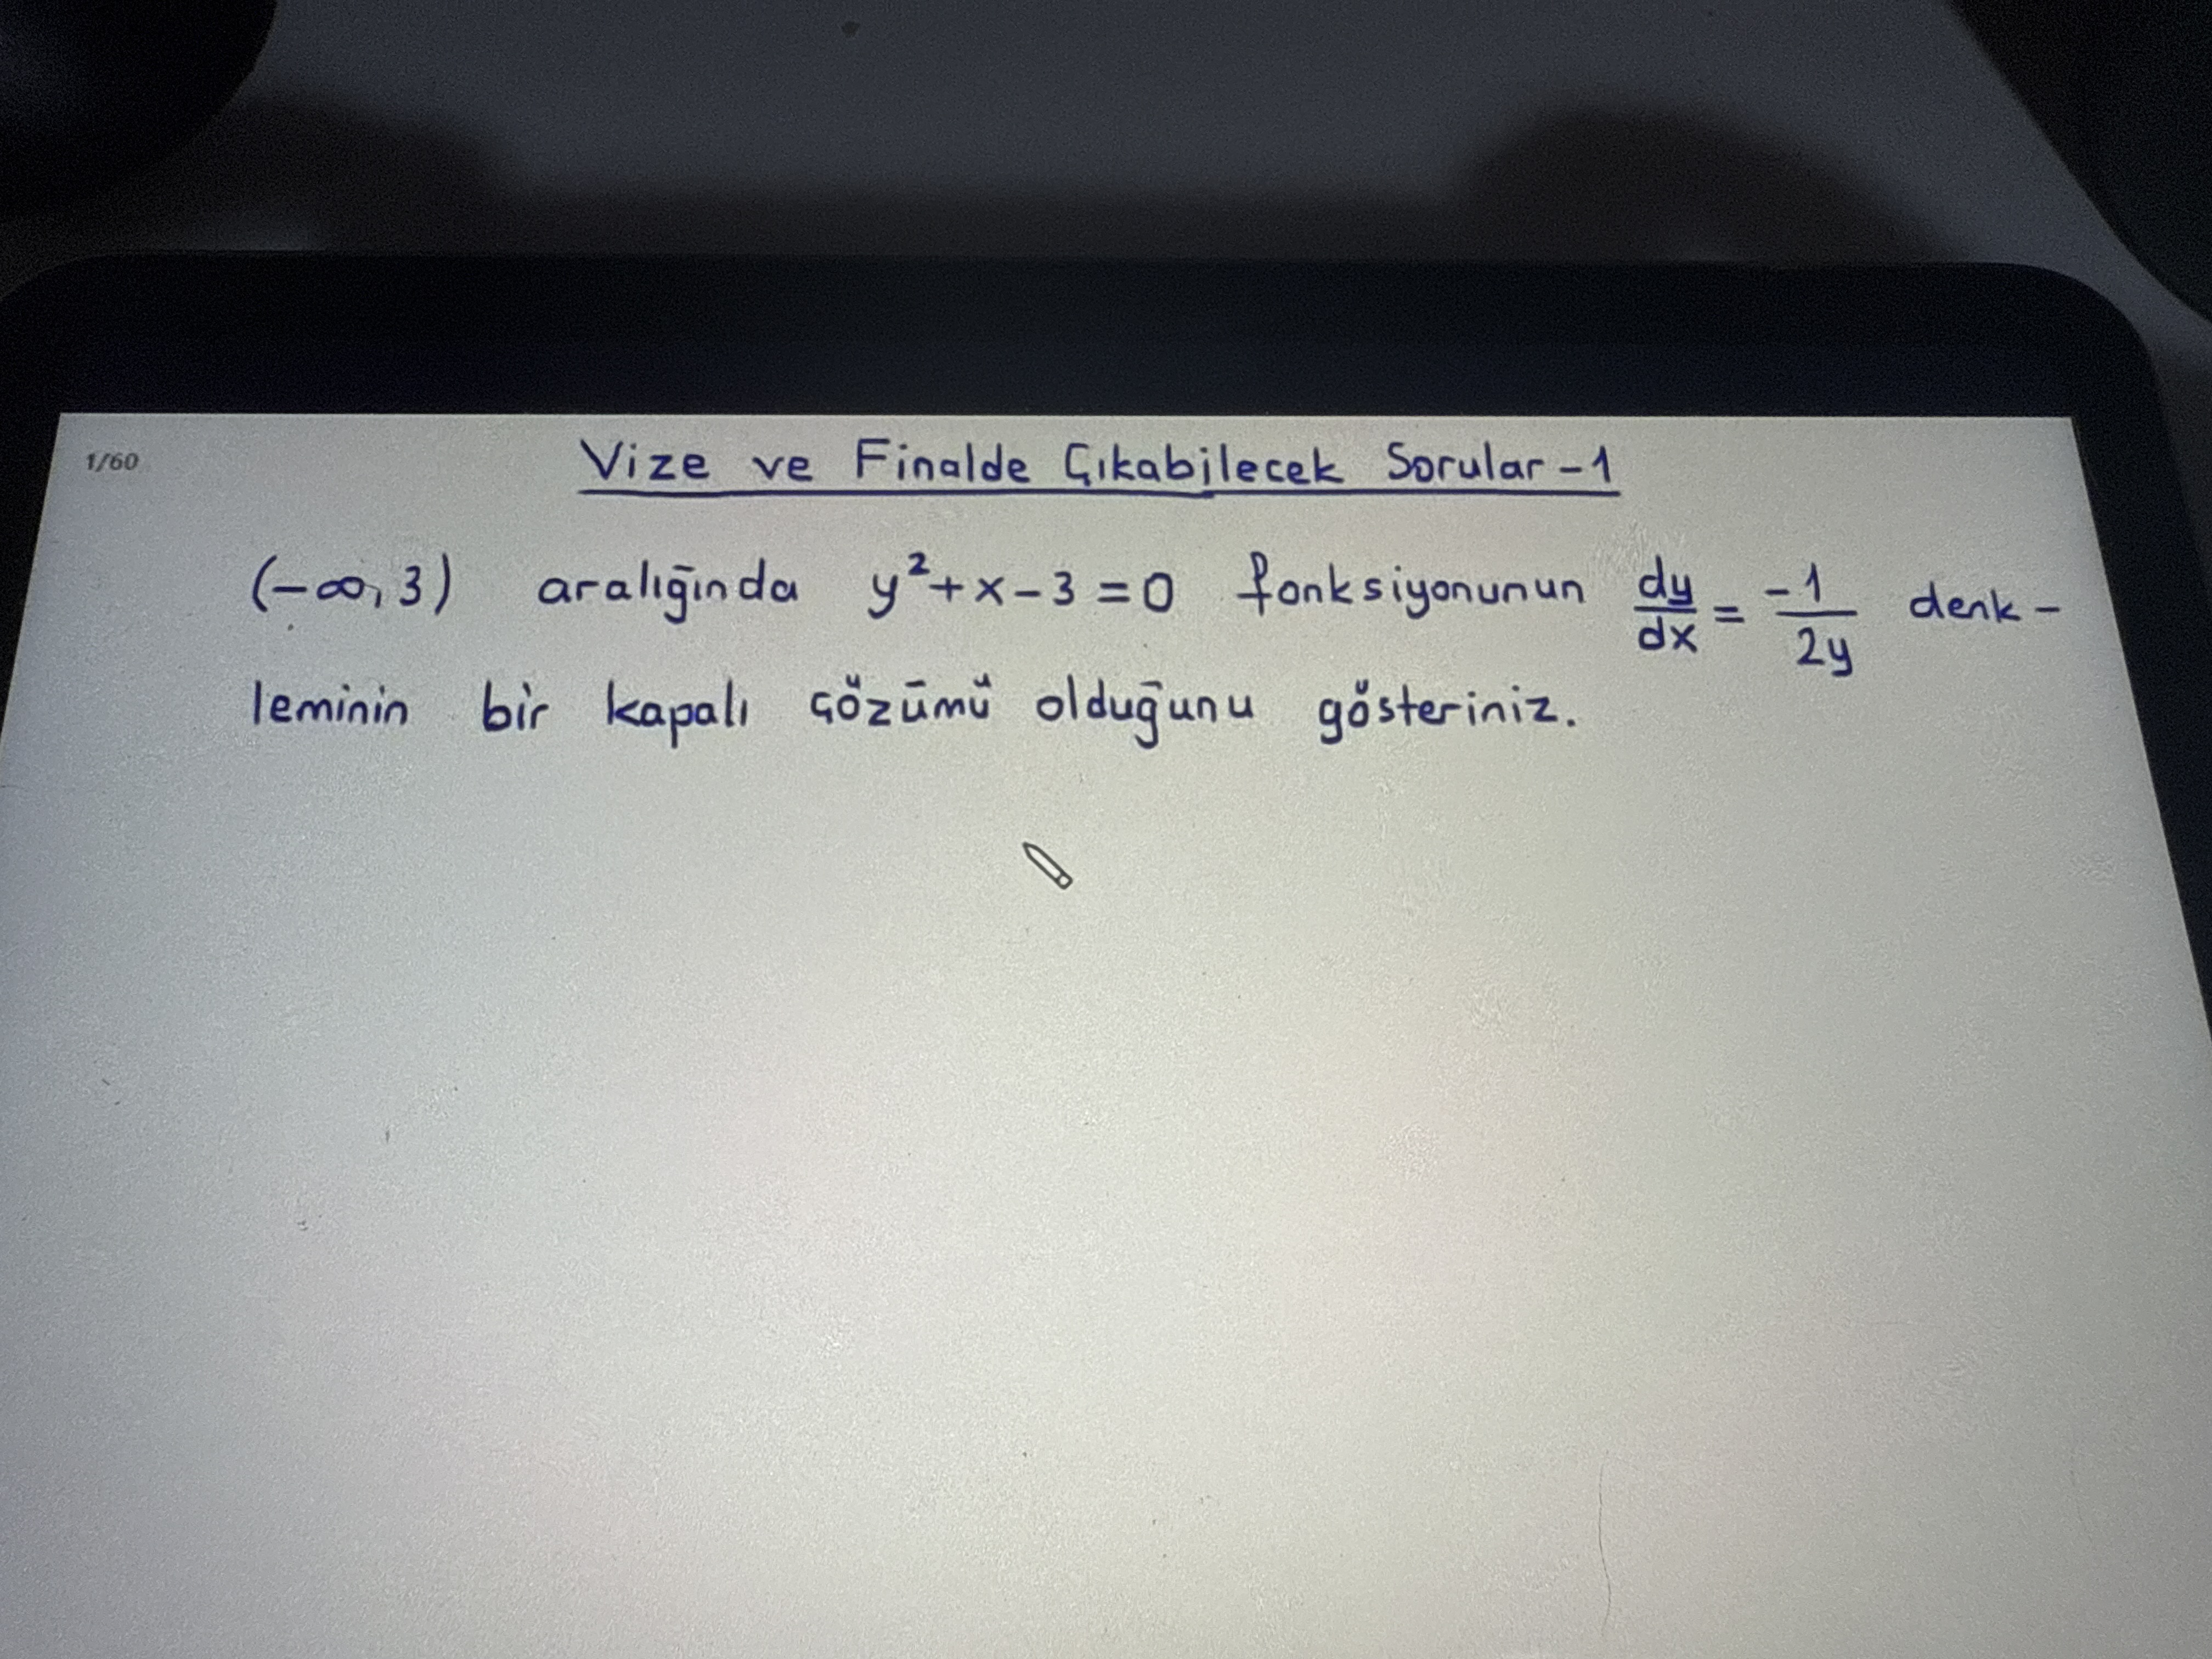 1/60
Vize ve Finalde Çıkabilecek Sorular-1
(-∞, 3) aralığında y²+x-3=0 fonksiyonunun dy/dx = -1/2y denk-
leminin bir kapalı çözümü olduğunu gösteriniz.